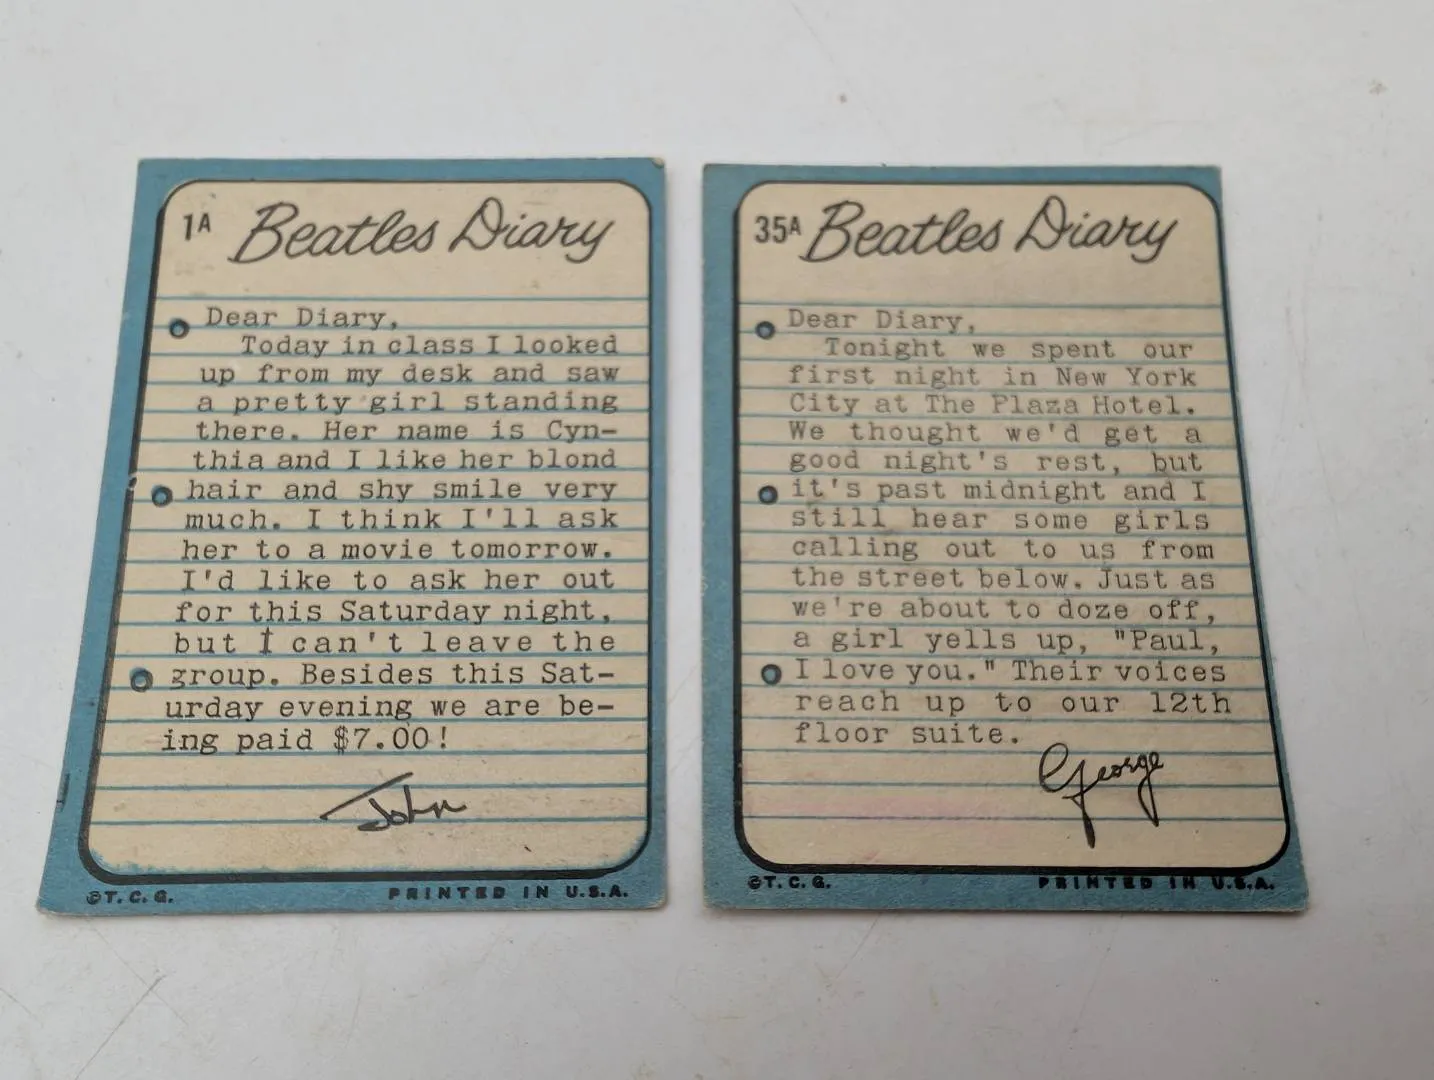 1A Beatles Diary
Dear Diary,
Today in class I looked
up from my desk and saw
a pretty girl standing
there. Her name is Cyn-
thia and I like her blond
hair and shy smile very
much. I think I'll ask
her to a movie tomorrow.
I'd like to ask her out
for this Saturday night,
but I can't leave the
group. Besides this Sat-
urday evening we are be-
ing paid $7.00!
John
©T.C.G. PRINTED IN U.S.A.
35A Beatles Diary
Dear Diary,
Tonight we spent our
first night in New York
City at The Plaza Hotel.
We thought we'd get a
good night's rest, but
it's past midnight and I
still hear some girls
calling out to us from
the street below. Just as
we're about to doze off,
a girl yells up, "Paul,
I love you." Their voices
reach up to our 12th
floor suite.
George
©T.C.G. PRINTED IN U.S.A.